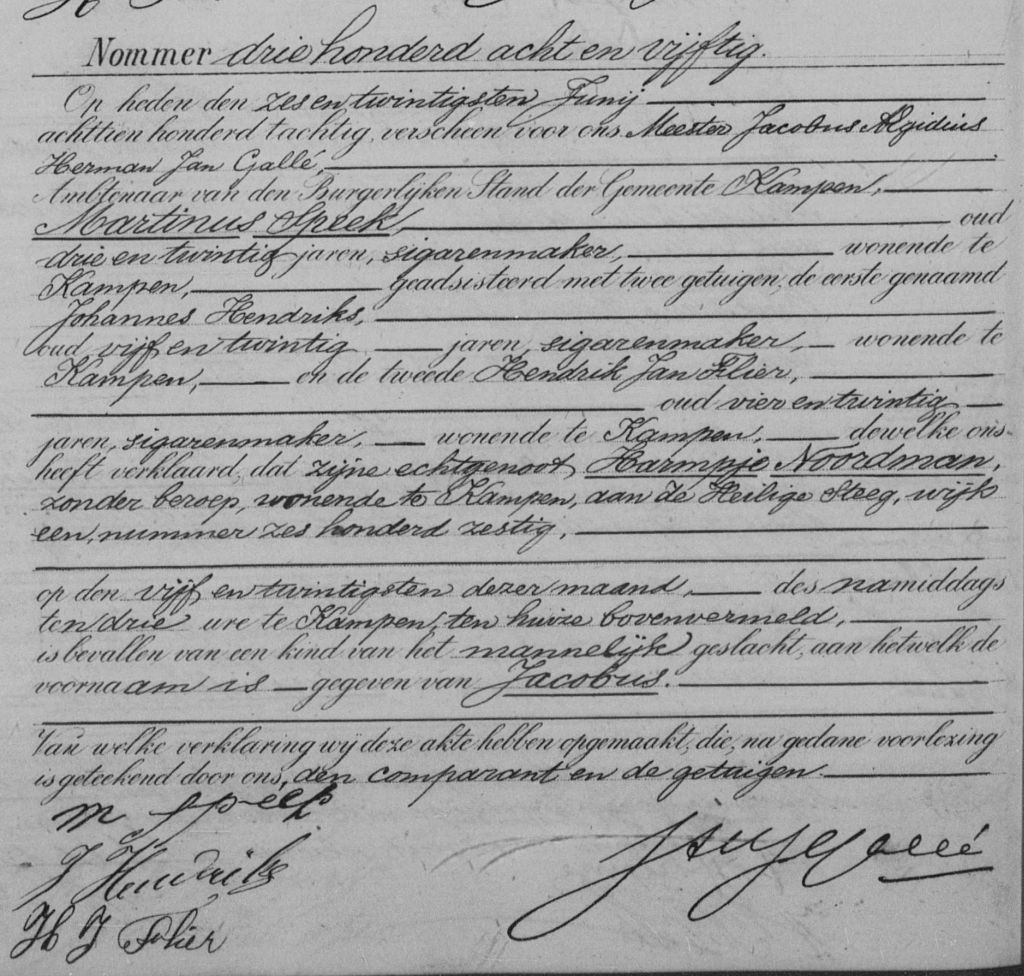 Nommer drie honderd acht en vijftig.
Op heden den zes en twintigsten Junij
achttien honderd tachtig, verscheen voor ons Meester Jacobus Ægidius
Herman Jan Gallé,
Ambtenaar van den Burgerlijken Stand der Gemeente Kampen,
Martinus Speek, oud
drie en twintig jaren, sigarenmaker, wonende te
Kampen, geadsisteerd met twee getuigen, de eerste genaamd
Johannes Hendriks,
oud vijf en twintig jaren, sigarenmaker, wonende te
Kampen, en de tweede Hendrik Jan Flier,
oud vier en twintig
jaren, sigarenmaker, wonende te Kampen, dewelke ons
heeft verklaard, dat zijne echtgenoot Harmpje Noordman,
zonder beroep, wonende te Kampen, aan de Heilige Steeg, wijk
een, nummer zes honderd zestig,
op den vijf en twintigsten dezer maand, des namiddags
ten drie ure te Kampen, ten huize bovenvermeld,
is bevallen van een kind van het mannelijk geslacht, aan hetwelk de
voornaam is gegeven van Jacobus.
Van welke verklaring wij deze akte hebben opgemaakt, die, na gedane voorlezing
is geteekend door ons, den comparant en de getuigen.
M Speek
J Hendriks
H J Flier